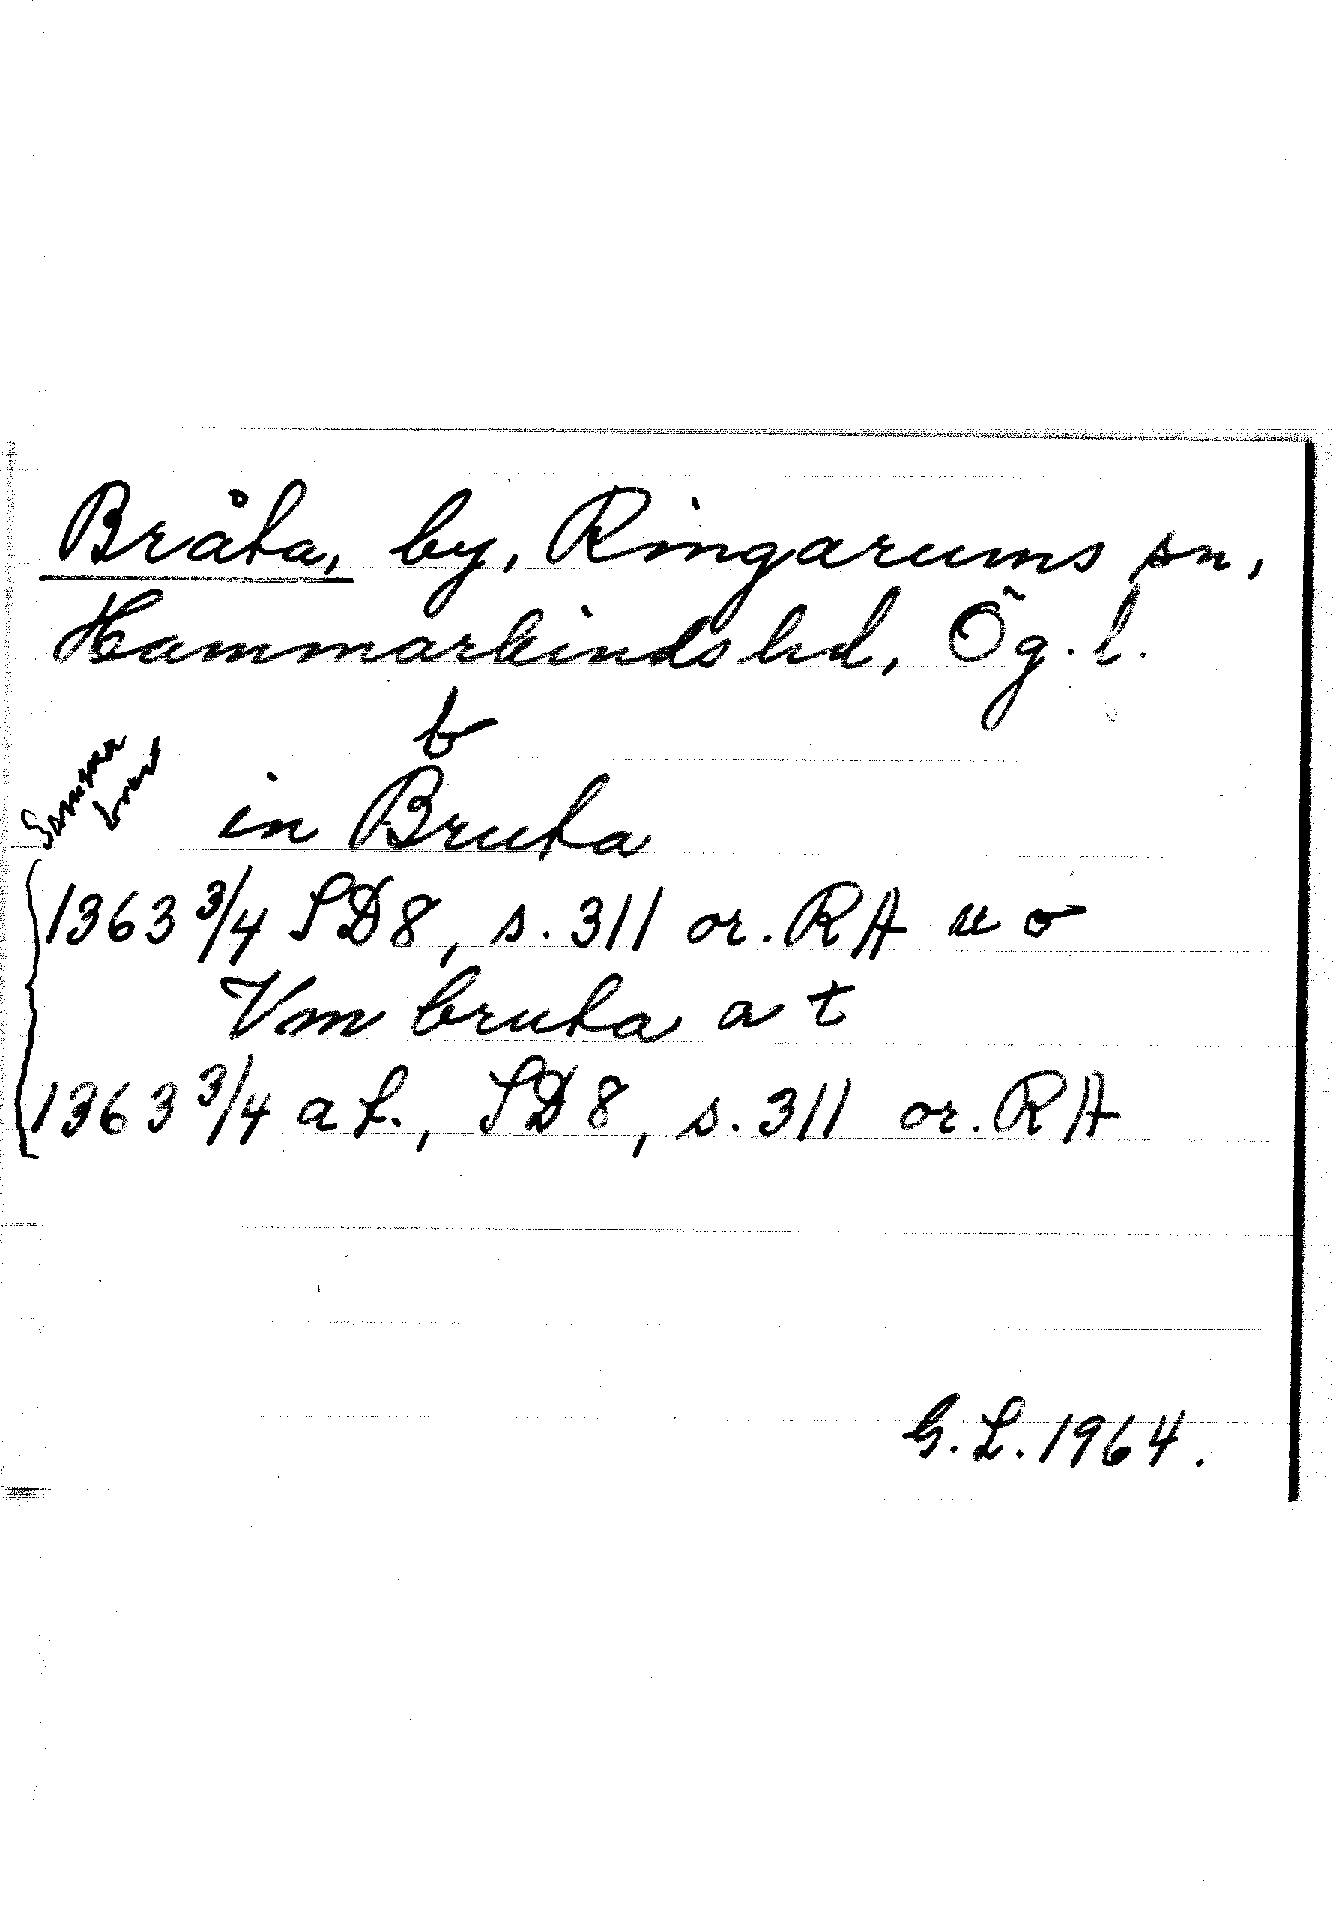 Bråta, by, Ringarums sn,
Hammarkinds hd, Ög. l.
b
Samma
brev
in Bruta
1363 3/4 SD8, s. 311 or. RA u o
Vm bruta a t
1363 3/4 at., SD8, s. 311 or. RA
G. L. 1964.